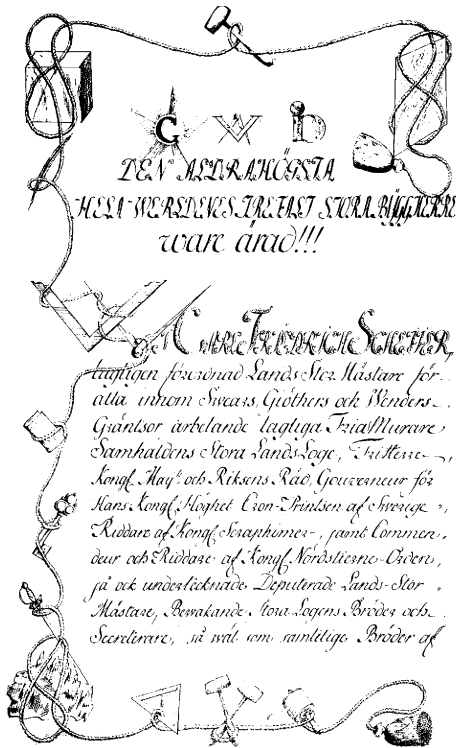 G W D
DEN ALDRAHÖGSTA
HELA WERLDENES TREFALT STORA BÿGGMERRE
ware ärad!!!
CARL FRIEDRICH SCHEFFER,
lagligen förordnad Lands Stor Mästare för
alla innom Swears, Giöthers och Wenders
Gräntsor arbetande lagliga Fria Murare
Samhäldens Stora Lands Loge, Friherre,
Kongl. May:ts och Riksens Råd, Gouverneur för
Hans Kongl. Höghet Cron-Printsen af Swerige,
Riddare af Kongl. Seraphimer, samt Commen
deur och Riddare af Kongl. Nordstierne-Orden,
så ock undertecknade Deputerade Lands-Stor
Mästare, Bewakande Stora Logens Bröder och
Secreterare, så wäl som samtelige Bröder af